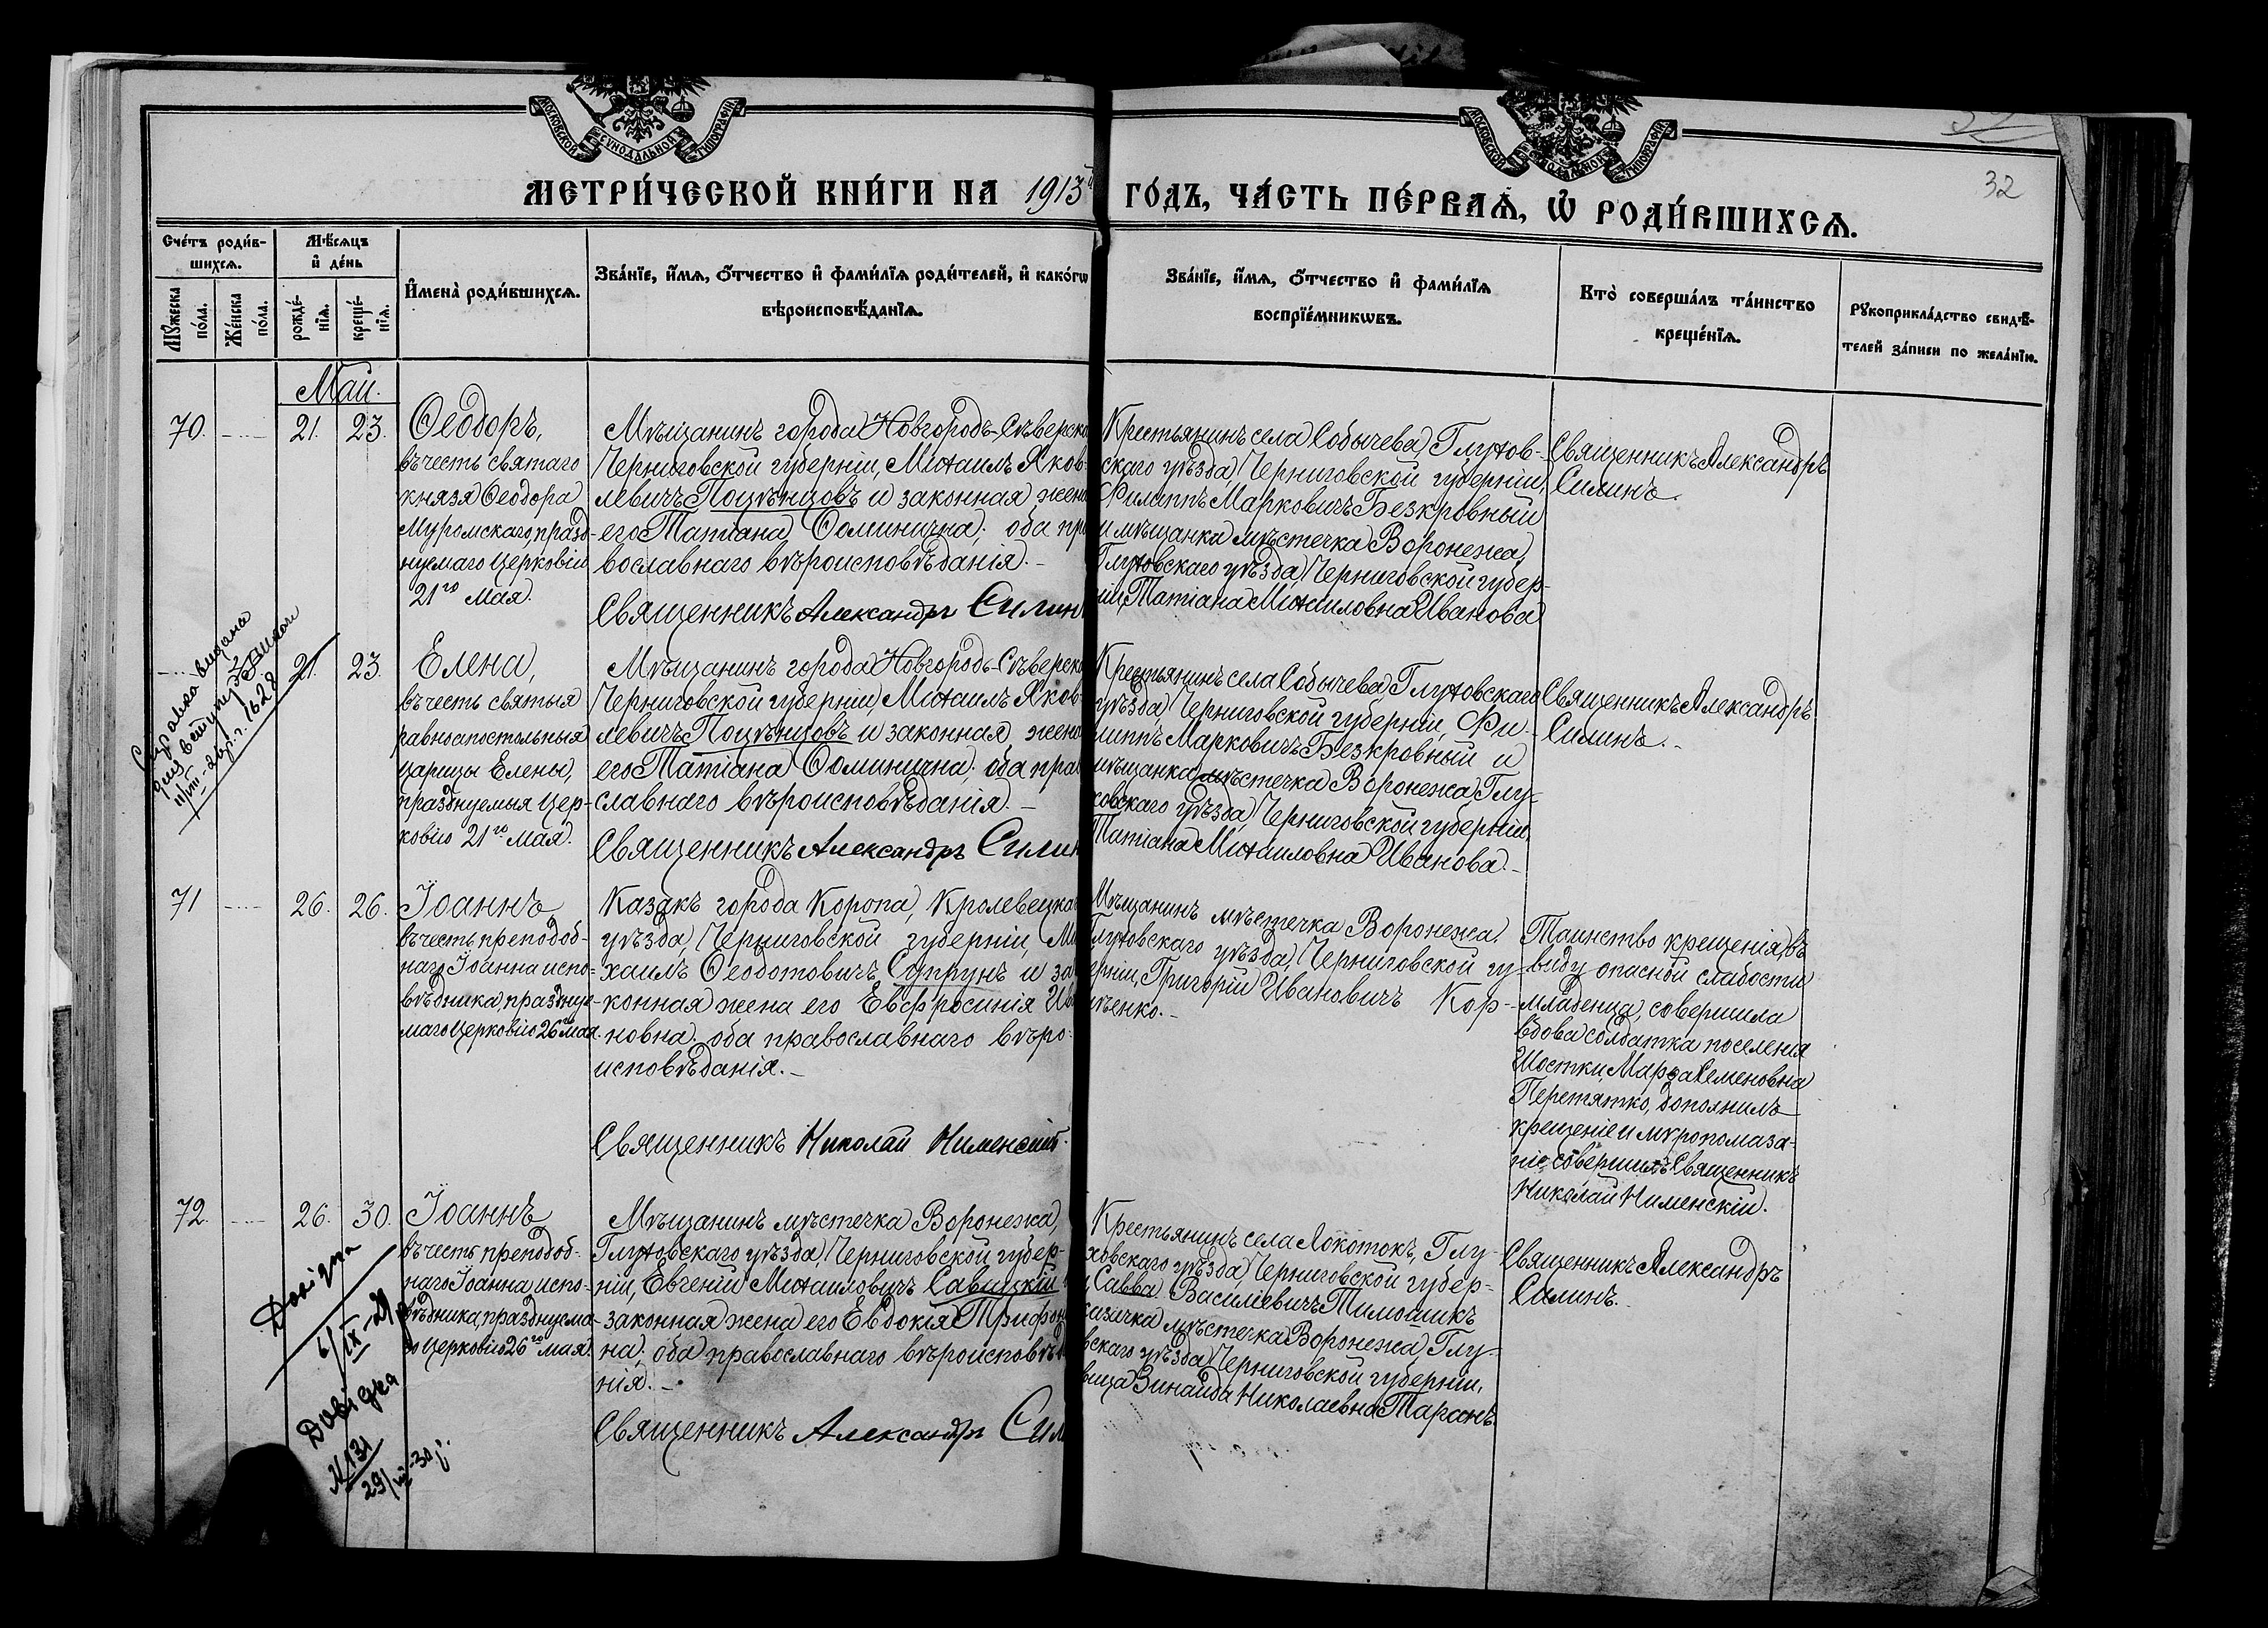 МОСКОВСКОЙ СѴНОДАЛЬНОЙ ТИПОГРАФІИ
МОСКОВСКОЙ СѴНОДАЛЬНОЙ ТИПОГРАФІИ
МЕТРИ́ЧЕСКОЙ КНИ́ГИ НА 1913й
ГО́ДЪ, ЧА́СТЬ ПЕ́РВАѦ, Ѽ РОДИ́ВШИХСѦ.
32
Сче́тъ роди́в-
шихсѧ.
Мѣ́сѧцъ
и҆ де́нь
Мꙋ́жеска
по́ла.
Же́нска
по́ла.
рожде́-
нїѧ.
креще́-
нїѧ.
И҆мена̀ роди́вшихсѧ.
Зва́нїе, и҆́мѧ, ѻ҆́тчество и҆ фами́лїѧ роди́телей, и҆ како́гѡ
вѣроисповѣ́данїѧ.
Зва́нїе, и҆́мѧ, ѻ҆́тчество и҆ фами́лїѧ
воспрїе́мникѡвъ.
Кто̀ соверша́лъ та́инство
креще́нїѧ.
Рꙋкоприкла́дство свидѣ́-
телей за́писи по жела́нїю.
Май.
70.
21.
23.
Ѳеодоръ,
въ честь святаго
князя Ѳеодора
Муромскаго, празд-
нуемаго Церковію
21го Мая.
Мѣщанинъ города Новгородъ-Сѣверска
Черниговской губерніи, Михаилъ Яков-
левичъ Поцѣнцовъ и законная жена
его Татіана Ѳоминична; оба пра
вославнаго вѣроисповѣданія.-
Священникъ Александръ Силин
Крестьянинъ села Собычева, Глухов-
скаго уѣзда, Черниговской губерніи,
Филиппъ Марковичъ Безкровный
и мѣщанка мѣстечка Воронежа,
Глуховскаго уѣзда, Черниговской губер-
ніи, Татіана Михаиловна Иванова
Священникъ Александръ
Силинъ.
Справка видана
для вступу
1628
21.
23.
Елена,
въ честь святыя
равноапостольныя
царицы Елены,
празднуемыя Цер-
ковію 21го Мая.
Мѣщанинъ города Новгородъ-Сѣверска
Черниговской губерніи, Михаилъ Яков-
левичъ Поцѣнцовъ и законная жена
его Татіана Ѳоминична; оба прав
славнаго вѣроисповѣданія.-
Священникъ Александръ Силин
Крестьянинъ села Собычева, Глуховскаго
уѣзда, Черниговской губерніи, Фи-
липпъ Марковичъ Безкровный и
мѣщанка мѣстечка Воронежа Глу-
ховскаго уѣзда, Черниговской губерніи,
Татіана Михаиловна Иванова.-
Священникъ Александръ
Силинъ.-
71
26.
26.
Іоаннъ
въ честь преподоб-
наго Іоанна испо-
вѣдника, празднуе-
маго Церковію 26го Мая.
Казакъ города Коропа, Кролевецкаг
уѣзда, Черниговской губерніи, Ми
хаилъ Ѳеодотовичъ Супрунъ и за
конная жена его Евфросинія Ива
новна; оба православнаго вѣро-
исповѣданія.-
Священникъ Николай Нименскій.
Мѣщанинъ мѣстечка Воронежа,
Глуховскаго уѣзда, Черниговской гу-
берніи, Григорій Ивановичъ Кор-
нѣенко.-
Таинство крещенія, въ
виду опасной слабости
младенца, совершила
вдова солдатка поселенія
Шостки, Марѳа Семеновна
Перетятко, дополнилъ
крещеніе и мѵропомаза-
ніе совершилъ Священникъ
Николай Нименскій.
72.
26.
30.
Іоаннъ
въ честь преподоб-
наго Іоанна, испо-
вѣдника, празднуема-
го Церковію 26го Мая.
Мѣщанинъ мѣстечка Воронежа,
Глуховскаго уѣзда, Черниговской губер-
ніи, Евгеній Михаиловичъ Савицкій и
законная жена его Евдокія Трифон
на; оба православнаго вѣроисповѣд
нія.-
Священникъ Александръ Сил
Крестьянинъ села Локотокъ, Глу-
ховскаго уѣзда, Черниговской губер-
, Савва Василіевичъ Тимошикъ
казачка мѣстечка Воронежа, Глу-
вскаго уѣзда, Черниговской губерніи,
вица Зинаида Николаевна Таранъ.
Священникъ Александръ
Силинъ.-
Довідка
6/IX-29 р.
Довідка
N 131
29/VII-30 р.